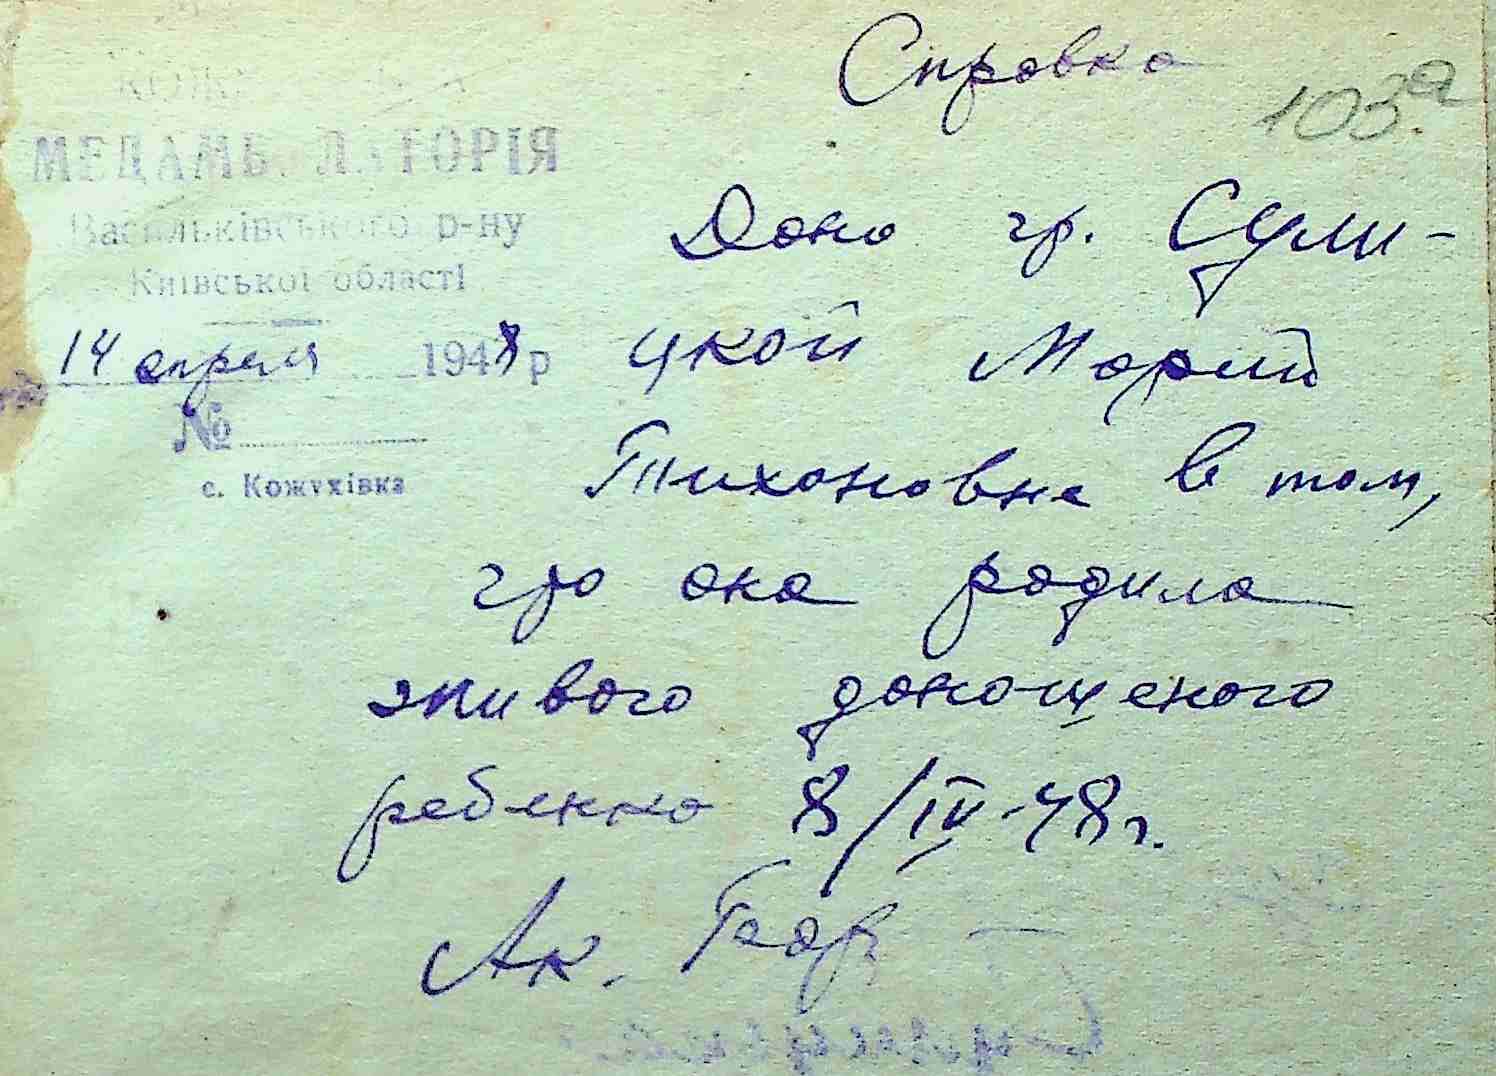 Справка
103а
МЕДАМБУЛАТОРІЯ
Васильківського р-ну
Київської області
14 апреля 1948 р
№
с. Кожухівка
Дана гр. Сули-
цкой Марии
Тихоновне в том,
что она родила
живого доношеного
ребенка 8/IV-48 г.
Ак.